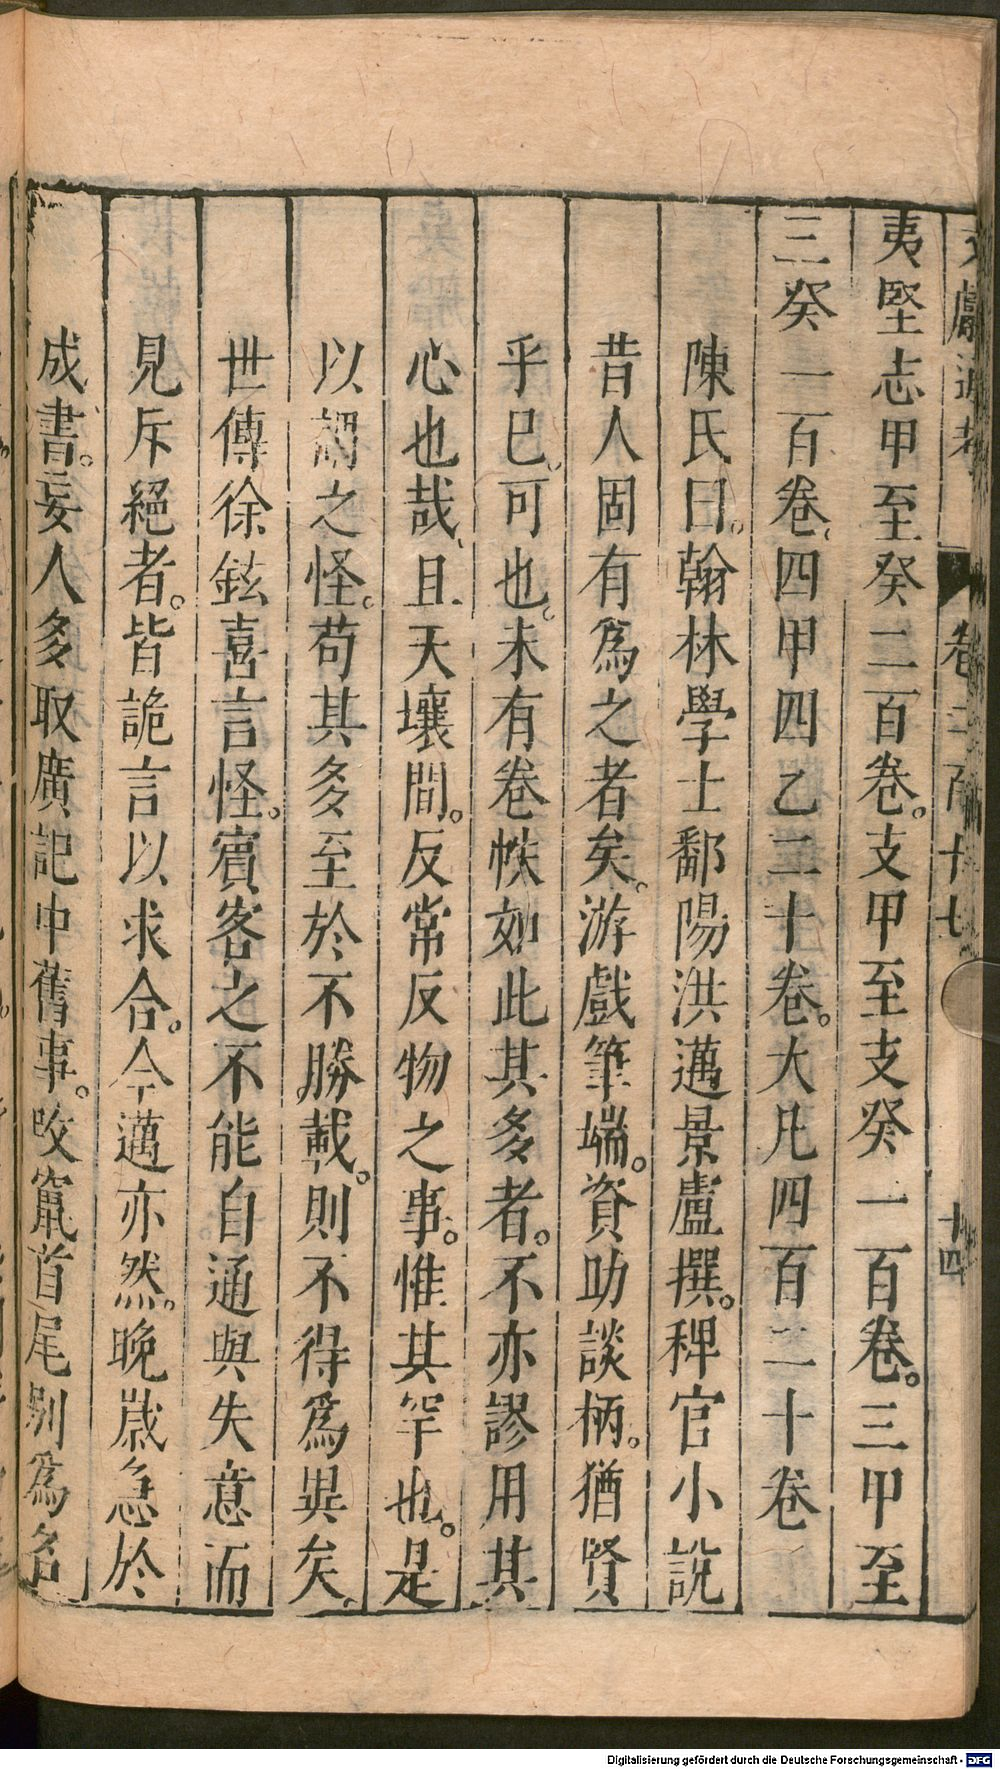 文獻通考 卷二百十七 十四
夷堅志甲至癸二百卷。支甲至支癸一百卷。三甲至
三癸一百卷、四甲四乙二十卷。大凡四百二十卷
陳氏曰。翰林學士鄱陽洪邁景盧撰。稗官小說
昔人固有爲之者矣。游戲筆端。資助談柄。猶賢
乎已、可也。未有卷帙如此其多者。不亦謬用其
心也哉、且天壤間。反常反物之事。惟其罕也。是
以謂之怪。苟其多至於不勝載。則不得爲異矣。
世傳徐鉉喜言怪。賓客之不能自通與失意而
見斥絕者。皆詭言以求合。今邁亦然。晚歲急於
成書。妄人多取廣記中舊事。改竄首尾別爲名
Digitalisierung gefördert durch die Deutsche Forschungsgemeinschaft - DFG